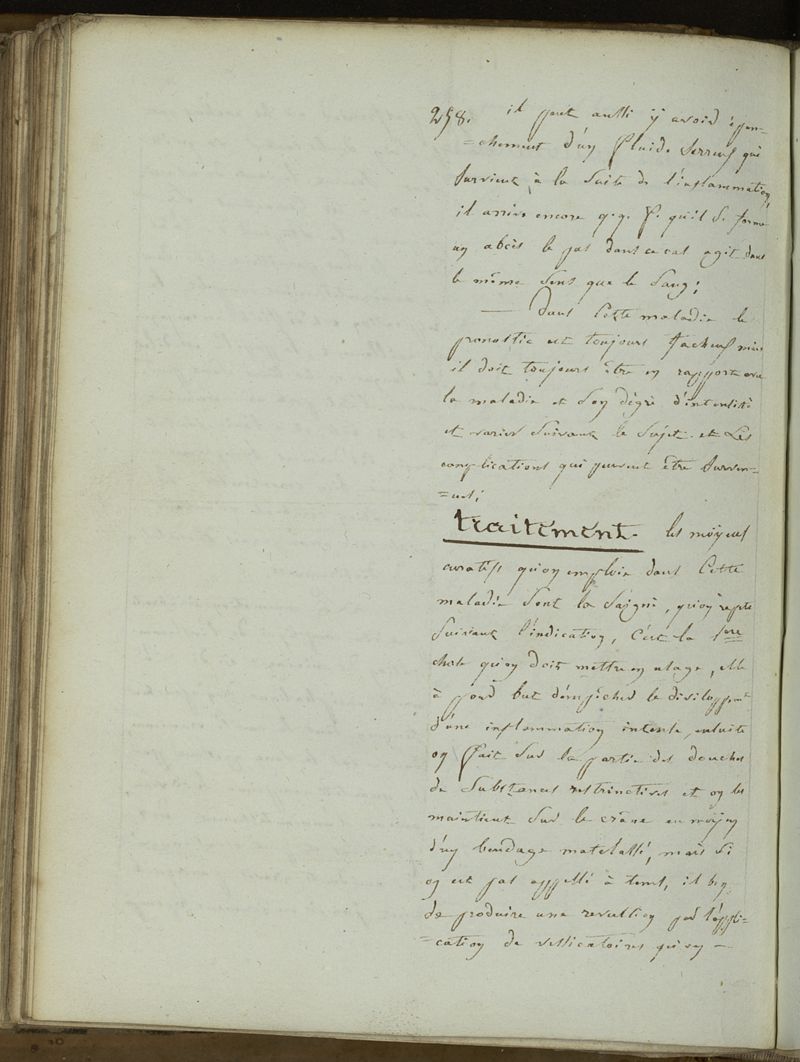 258. il peut aussi y avoir épan-
=chement d'un fluide serreux qui
survient à la suite de l'inflammation
il arrive encore q.q. f. qu'il se forme
un abcès le pus dans ce cas agit dans
le même sens que le sang;
— Dans cette maladie le
pronostic est toujours facheux mais
il doit toujours être en rapport avec
la maladie et son dégré d'intensité
et varier suivant le sujet et les
complications qui peuvent être surven-
=ues;
traitement. les moyens
curatifs qu'on emploie dans cette
maladie sont la saignée, qu'on repete
suivant l'indication, c'est la 1ere
chose qu'on doit mettre en usage, elle
à pour but d'empécher le dévilopment
d'une inflammation intense, ensuite
on fait sur la partie des douches
de substances restrinctives et on les
maintient sur le crâne au moyen
d'un bandage matelassé, mais si
on est pas appellé à tems, il
de produire une revultion par l'appli-
=cation de vessicatoires qu'on —